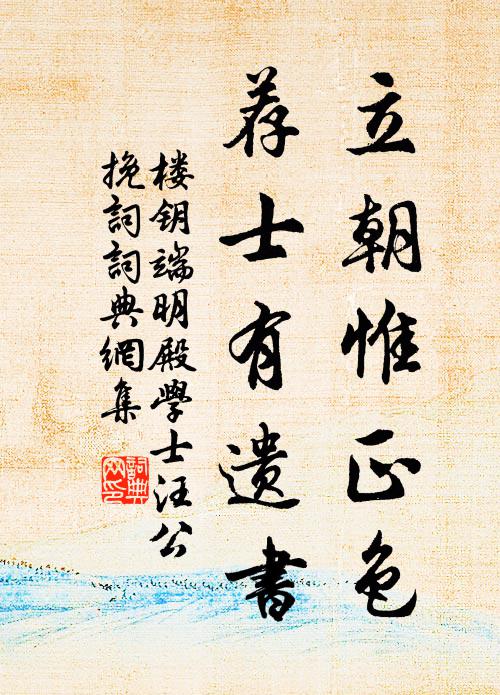 立朝惟正色
荐士有遗書
楼钥端明殿學士汪公
挽詞詞典網集
詞典
网印